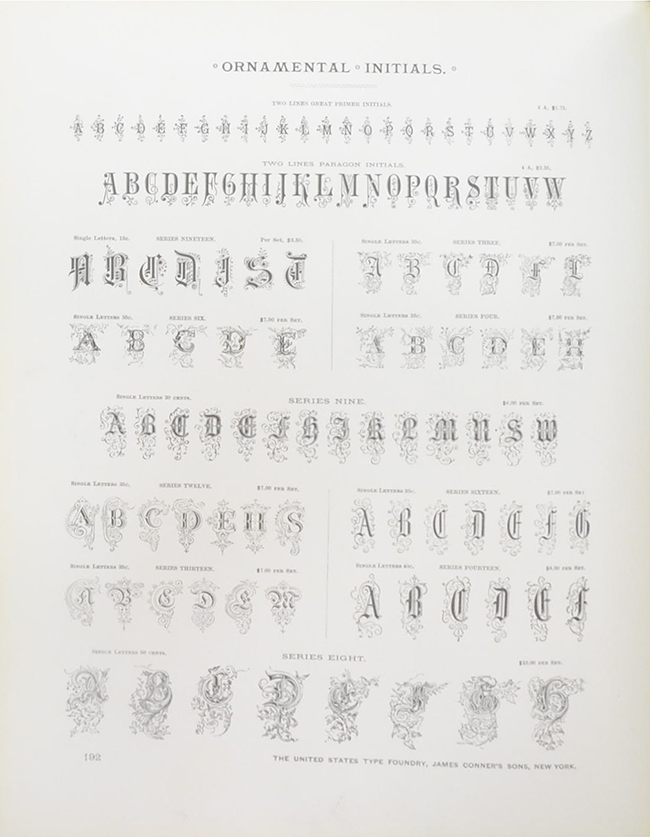 ORNAMENTAL INITIALS.
TWO LINES GREAT PRIMER INITIALS. 4 A, $1.75.
A B C D E F G H I J K L M N O P Q R S T U V W X Y Z
TWO LINES PARAGON INITIALS. 4 A,
A B C D E F G H I J K L M N O P Q R S T U V W
Single Letters, SERIES NINETEEN. Per Set,
A B C D J S T
SINGLE LETTERS SERIES THREE. $7.00 PER SET.
A B C D F L
SINGLE LETTERS SERIES SIX. $7.00 PER SET.
A B C D E
SINGLE LETTERS SERIES FOUR. $7.00 PER SET.
A B C D E H
SINGLE LETTERS 50 CENTS. SERIES NINE. PER SET.
A B C D E F H I K L M N S W
SINGLE LETTERS SERIES TWELVE. $7.00 PER SET.
A B C D E H S
SINGLE LETTERS SERIES SIXTEEN. $7.00 PER SET.
A B C D E F G
SINGLE LETTERS SERIES THIRTEEN. $7.00 PER SET.
A B C D E M
SINGLE LETTERS SERIES FOURTEEN. PER SET.
A B C D E F
SINGLE LETTERS 50 CENTS. SERIES EIGHT. PER SET.
A B C D E F G H
192 THE UNITED STATES TYPE FOUNDRY, JAMES CONNER'S SONS, NEW YORK.